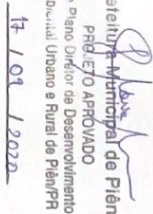 Prefeitura Municipal de Piên
PROJETO APROVADO
Plano Diretor de Desenvolvimento
Urbano e Rural de Piên/PR
17 / 09 / 2020